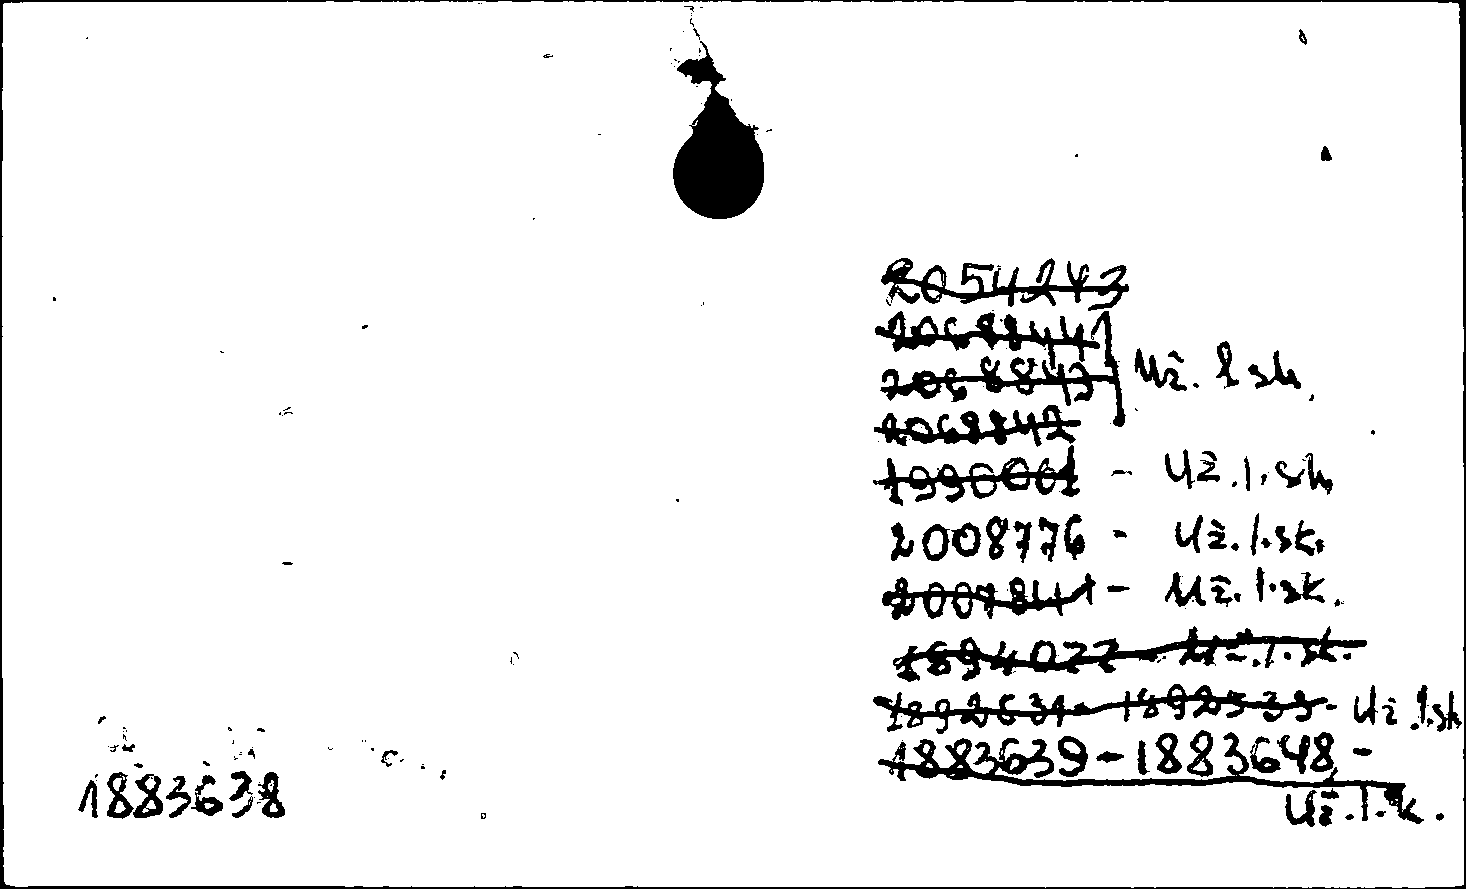 2054243
2068844
2068843 Už. l sk.
2068842
1990061 - Už. l. sk.
2008776 - Už. l. sk.
2007841 - Už. l. sk.
1894022 - Už. l. sk.
1892631 - 1892539 - Už. l. sk
1883639 - 1883648 -
Už. l. sk.
1883638